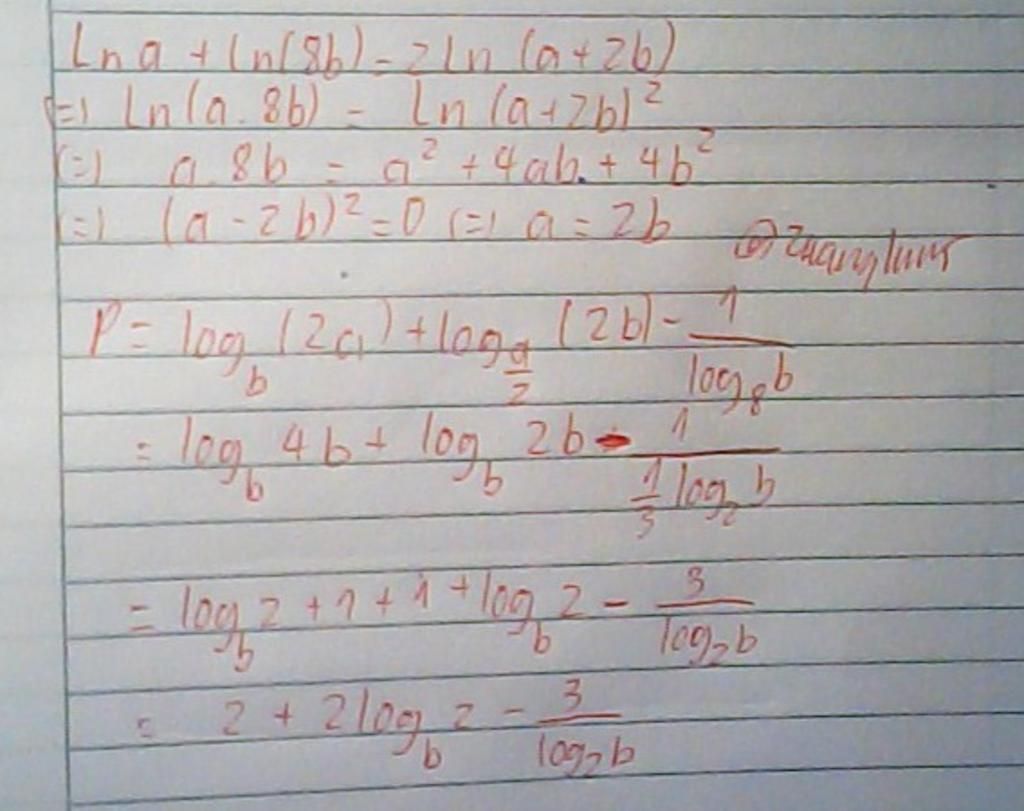 Ln a + ln(8b) = 2 ln (a+2b)
(=) Ln(a.8b) = Ln (a+2b)²
(=) a.8b = a² + 4ab + 4b²
(=) (a - 2b)² = 0 (=) a = 2b
P = log_b (2a) + log_{a/2} (2b) - 1/(log_8 b)
= log_b 4b + log_b 2b - 1/(1/3 log_2 b)
= log_b 2 + 1 + 1 + log_b 2 - 3/(log_2 b)
= 2 + 2 log_b 2 - 3/(log_2 b)